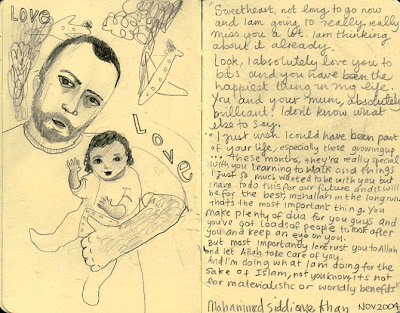 LOVE
Love
"Sweetheart, not long to go now
and I am going to really, really
miss you a lot. I am thinking
about it already.
Look, I absolutely love you to
bits and you have been the
happiest thing in my life.
You and your mum, absolutely
brilliant. I don't know what
else to say.
"I just wish I could have been part
of your life, especially these growing up
... these months, they're really special
with you learning to walk and things
I just so much wanted to be with you but
I have to do this for our future and it will
be for the best, inshallah in the long run
that's the most important thing. You
make plenty of dua for you guys and
you've got loads of people to look after
you and keep an eye on you.
But most importantly I entrust you to Allah
and let Allah take care of you.
And I'm doing what I am doing for the
sake of Islam, not, you know, it's not
for materialistic or worldly benefits"
Mohammed Siddique Khan NOV 2004